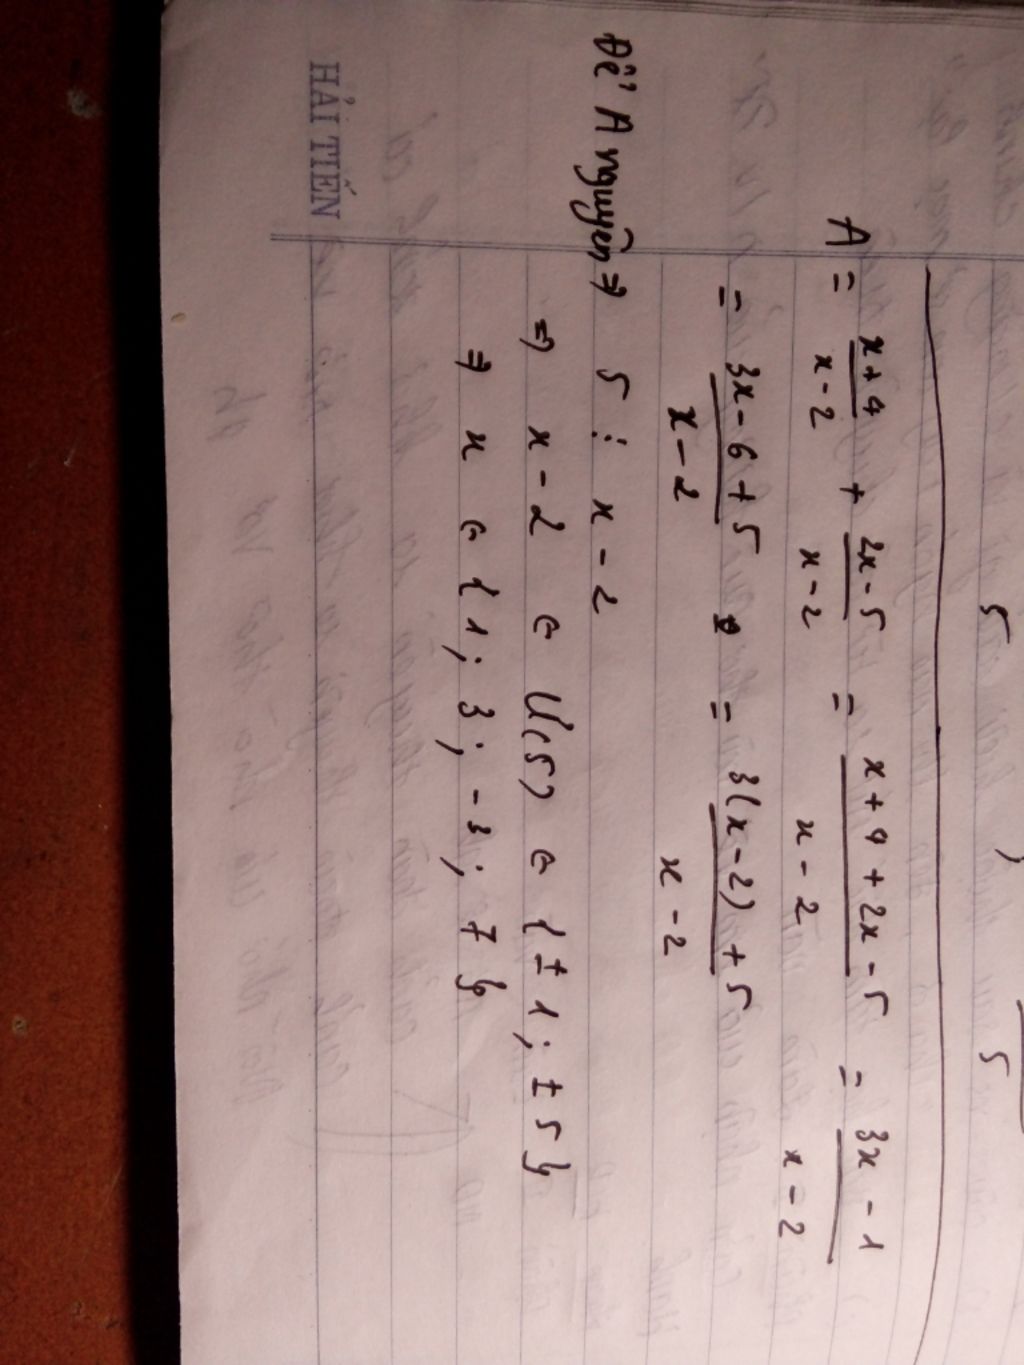 5 5
A = x+4/x-2 + 2x-5/x-2 = x+4+2x-5/x-2 = 3x-1/x-2
= 3x-6+5/x-2 = 3(x-2)+5/x-2
Để A nguyên ⇒ 5 ⋮ x-2
⇒ x-2 ∈ Ư(5) ∈ {±1; ±5}
⇒ x ∈ {1; 3; -3; 7}
HẢI TIẾN